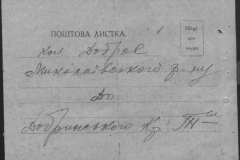 ПОШТОВА ЛИСТКА.
Місце
для
марки
кол Доброе
Миколаївського р-ну
До
Добринського